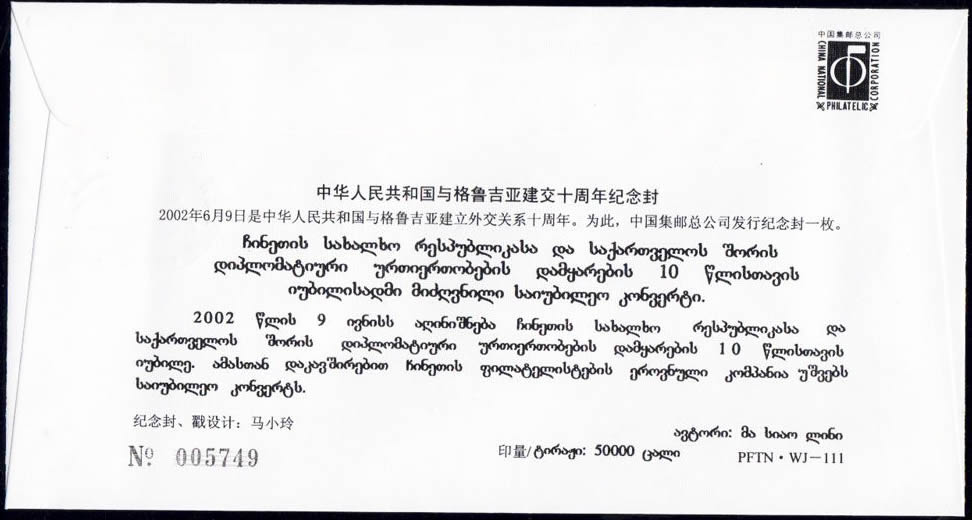 中国集邮总公司
CHINA NATIONAL
PHILATELIC
CORPORATION
中华人民共和国与格鲁吉亚建交十周年纪念封
2002年6月9日是中华人民共和国与格鲁吉亚建立外交关系十周年。为此，中国集邮总公司发行纪念封一枚。
ჩინეთის სახალხო რესპუბლიკასა და საქართველოს შორის
დიპლომატიური ურთიერთობების დამყარების 10 წლისთავის
იუბილისადმი მიძღვნილი საიუბილეო კონვერტი.
2002 წლის 9 ივნისს აღინიშნება ჩინეთის სახალხო რესპუბლიკასა და
საქართველოს შორის დიპლომატიური ურთიერთობების დამყარების 10 წლისთავის
იუბილე. ამასთან დაკავშირებით ჩინეთის ფილატელისტების ეროვნული კომპანია უშვებს
საიუბილეო კონვერტს.
纪念封、戳设计：马小玲
ავტორი: მა სიაო ლინი
№ 005749
印量/ტირაჟი: 50000 ცალი
PFTN·WJ－111